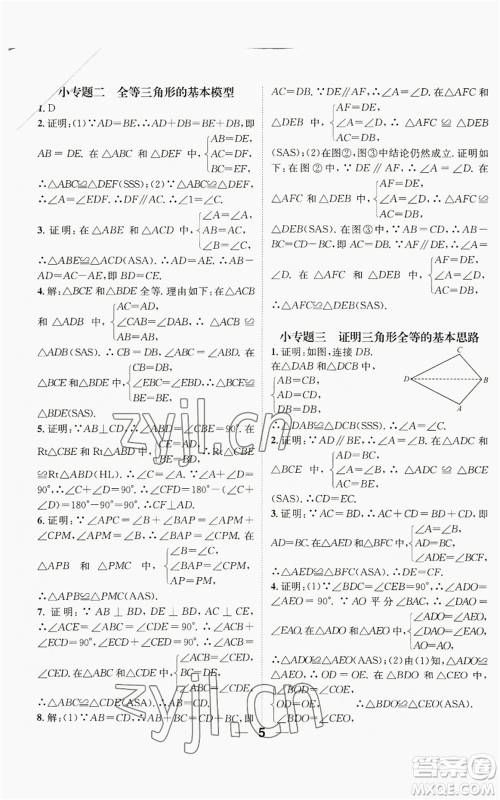 小专题二 全等三角形的基本模型
1. D
2. 证明:(1)∵AD=BE,∴AD+DB=BE+DB,即
AB=DE. 在△ABC 和△DEF 中,{AB=DE, AC=DF, BC=EF,
∴△ABC≌△DEF(SSS);(2)∵△ABC≌△DEF,
∴∠A=∠EDF. ∴DF∥AC.
3. 证明:在△ABE 和△ACD 中,{∠A=∠A, AB=AC, ∠B=∠C,
∴△ABE≌△ACD(ASA). ∴AD=AE. ∴AB-
AD=AC-AE. ∴BD=CE.
4. 解:△BCE 和△BDE 全等. 理由如下:在△ACB
和△ADB 中,{AC=AD, ∠CAB=∠DAB, AB=AB, ∴△ACB≌
△ADB(SAS). ∴BC=BD, ∠CBA=∠DBA. 在
△BCE 和△BDE 中,{BC=BD, ∠CBE=∠DBE, BE=BE, ∴△BCE≌
△BDE(SAS).
5. 证明:∵AB⊥CD,∴∠ABD=∠CBE=90°. 在
Rt△CBE 和Rt△ABD 中,{CE=AD, BE=BD, ∴Rt△CBE
≌Rt△ABD(HL). ∴∠C=∠A. ∵∠A+∠D=
90°,∴∠C+∠D=90°. ∴∠CFD=180°-(∠C
+∠D)=180°-90°=90°. ∴CF⊥AD.
6. 证明:∵∠APC=∠B+∠BAP=∠APM+
∠CPM,∠APM=∠B,∴∠BAP=∠CPM. 在
△APB 和△PMC 中,{∠B=∠C, AP=PM,
∴△APB≌△PMC(ASA).
7. 证明:∵AB⊥BD,DE⊥BD,AC⊥CE,
∴∠ACE=∠B=∠D=90°. ∴∠ACB+∠ECD
+∠ECD=180°-90°=90°. ∴∠ACB=
∠CED. 在△ABC 和△CDE 中,{∠ACB=∠CED, BC=DE, ∠B=∠D,
∴△ABC≌△CDE(ASA). ∴AB=CD.
8. 解:(1)∵AB=CD,∴AB+BC=CD+BC,即
AC=DB. ∵AF∥DE,∴∠A=∠D. 在△AFC 和
△DEB 中,{AF=DE, ∠A=∠D, AC=DB, ∴△AFC≌△DEB
(SAS);(2)在图②,图③中结论仍然成立. 证明:如
图②,∵AB=CD,∴AB-BC=CD-BC,即
AC=DB. ∵AF∥DE,∴∠A=∠D. 在△AFC 和
△DEB 中,{AF=DE, ∠A=∠D, AC=DB, ∴△AFC≌
△DEB(SAS). 如图③,∵AB=CD,∴BC-AB=BC-CD,即
AC=DB. ∵AF∥DE,∴∠A=∠D.
在△AFC 和△DEB 中,{AF=DE, ∠A=∠D, AC=DB, ∴△AFC≌△DEB(SAS).
小专题三 证明三角形全等的基本思路
1. 证明:如图,连接 DB.
在△DAB 和△DCB 中,
{AB=CB, AD=CD, DB=DB, ∴△DAB≌△DCB(SSS). ∴∠A=∠C.
C
D
B
A
2. 证明:∵AD∥BE,∴∠A=∠B. 在△ACD 和
△BCE 中,{AD=BC, ∠A=∠B, AC=BE, ∴△ACD≌△BEC
(SAS). ∴CD=EC.
3. 证明:∵AC=BD,∴AC+CD=BD+CD,即
AD=BC. 在△AED 和△BFC 中,{∠A=∠B, AD=BC, ∠ADE=∠BCF,
∴△AED≌△BFC(ASA). ∴DE=CF.
4. 证明:(1)∵∠BDC=∠CEB=90°,∴∠ADO=
∠AEO=90°. ∵∠1=∠2,在△DAO 和
△EAO 中,{∠ADO=∠AEO, AO=AO, ∴△DAO≌
△EAO(AAS). ∴AD=AE;(2)由(1)知,△DAO
≌△EAO,∴OD=OE. ∵∠BDC=∠CEB=90°,
5
zyjl.cn
zyjl.cn
作业精灵